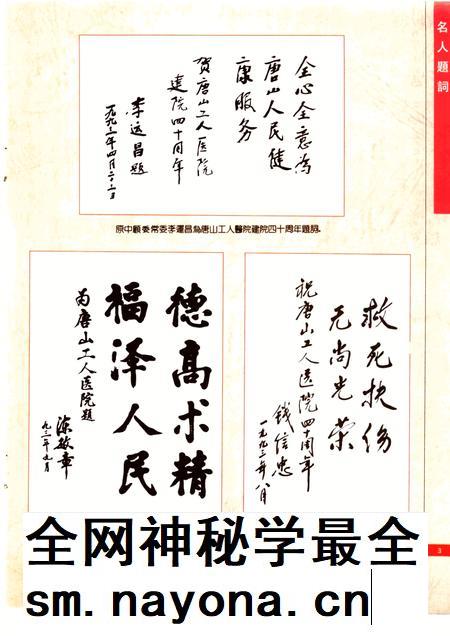 名人題詞
全心全意为
唐山人民健
康服务
贺唐山工人医院
建院四十周年
李运昌题
原中顧委常委李運昌為唐山工人醫院建院四十周年題詞。
救死扶伤
无尚光荣
祝唐山工人医院四十周年
钱信忠
德高术精
福泽人民
为唐山工人医院题
陈敏章
3
全网神秘学最全
sm.nayona.cn